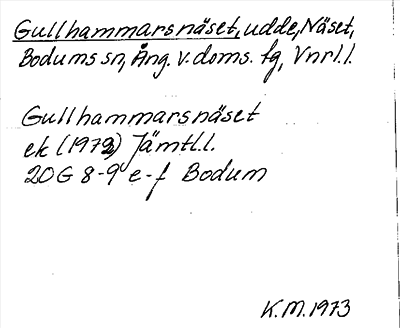 Gullhammarsnäset, udde, Näset,
Bodums sn, Ång. v. doms. fg, Vnrl.l.
Gullhammarsnäset
ek (1972) Jämtl.l.
20G 8-9 e-f Bodum
K.M. 1973